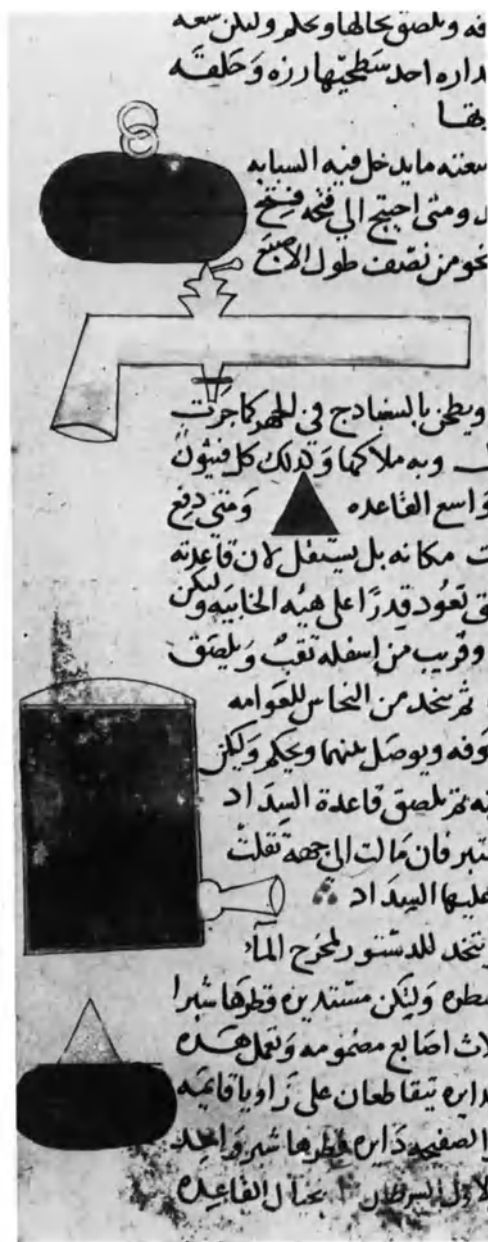 فه ويلصق بحالها ويحكم وليكن سعه
داره احد سطحيها رزه وحلقه
بها
سعته ما يدخل فيه السبابه
ومتى احتيج الى فتحه فتح
نحو من نصف طول الاصبع
ويطحن بالسنباذج في الجهر كما جرت
وبه ملاكها وكذلك كل فنيون
واسع القاعده ومتى دفع
ت مكانه بل يستقل لان قاعدته
تعود قدرا على هيه الخابيه وليكن
وقريب من اسفله ثقب ويلصق
ثم يتخد من النحاس للعوامه
وفه ويوصل بينهما ويحكم وليكن
ثم يلصق قاعدة السداد
فان مالت الى جهة ثقلت
عليها السداد
يتخد للدستور لمخرج الماء
وليكن مستديره قطرها شبرا
لاث اصابع مضمومه وتعمل هذه
دايره يتقاطعان على زاويا قايمه
الصفيحه دايره قطرها شبر واحد
لاول السرطان بحيال القاعده